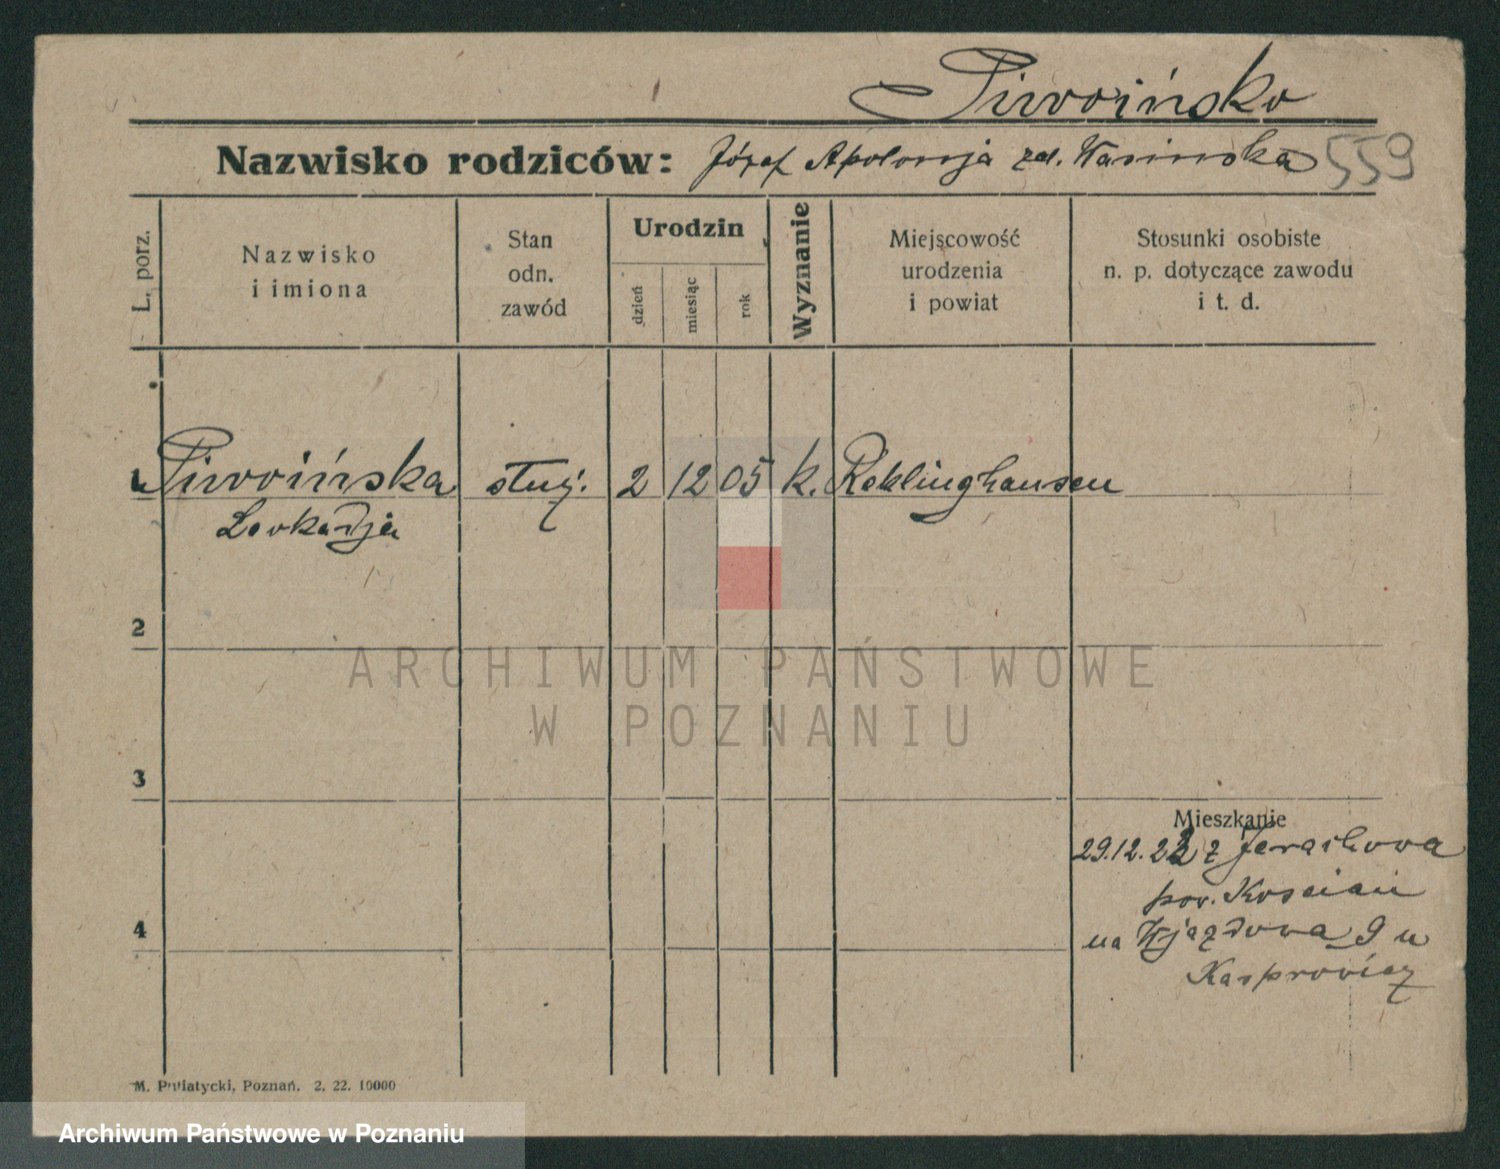 Piwoińsko
Nazwisko rodziców: Józef Apolonja zd. Wasinska 559
L. porz.
Nazwisko
i imiona
Stan
odn.
zawód
Urodzin
dzień
miesiąc
rok
Wyznanie
Miejscowość
urodzenia
i powiat
Stosunki osobiste
n. p. dotyczące zawodu
i t. d.
1 Piwoińska służ. 2 12 05 k. Reklinghausen
Leokadja
2
ARCHIWUM PAŃSTWOWE
W POZNANIU
3
Mieszkanie
29.12.22 z
pow. Koscian
4
na Wjazdowa 9 u
Kasprowicz
M. Putiatycki, Poznań. 2. 22. 10000
Archiwum Państwowe w Poznaniu